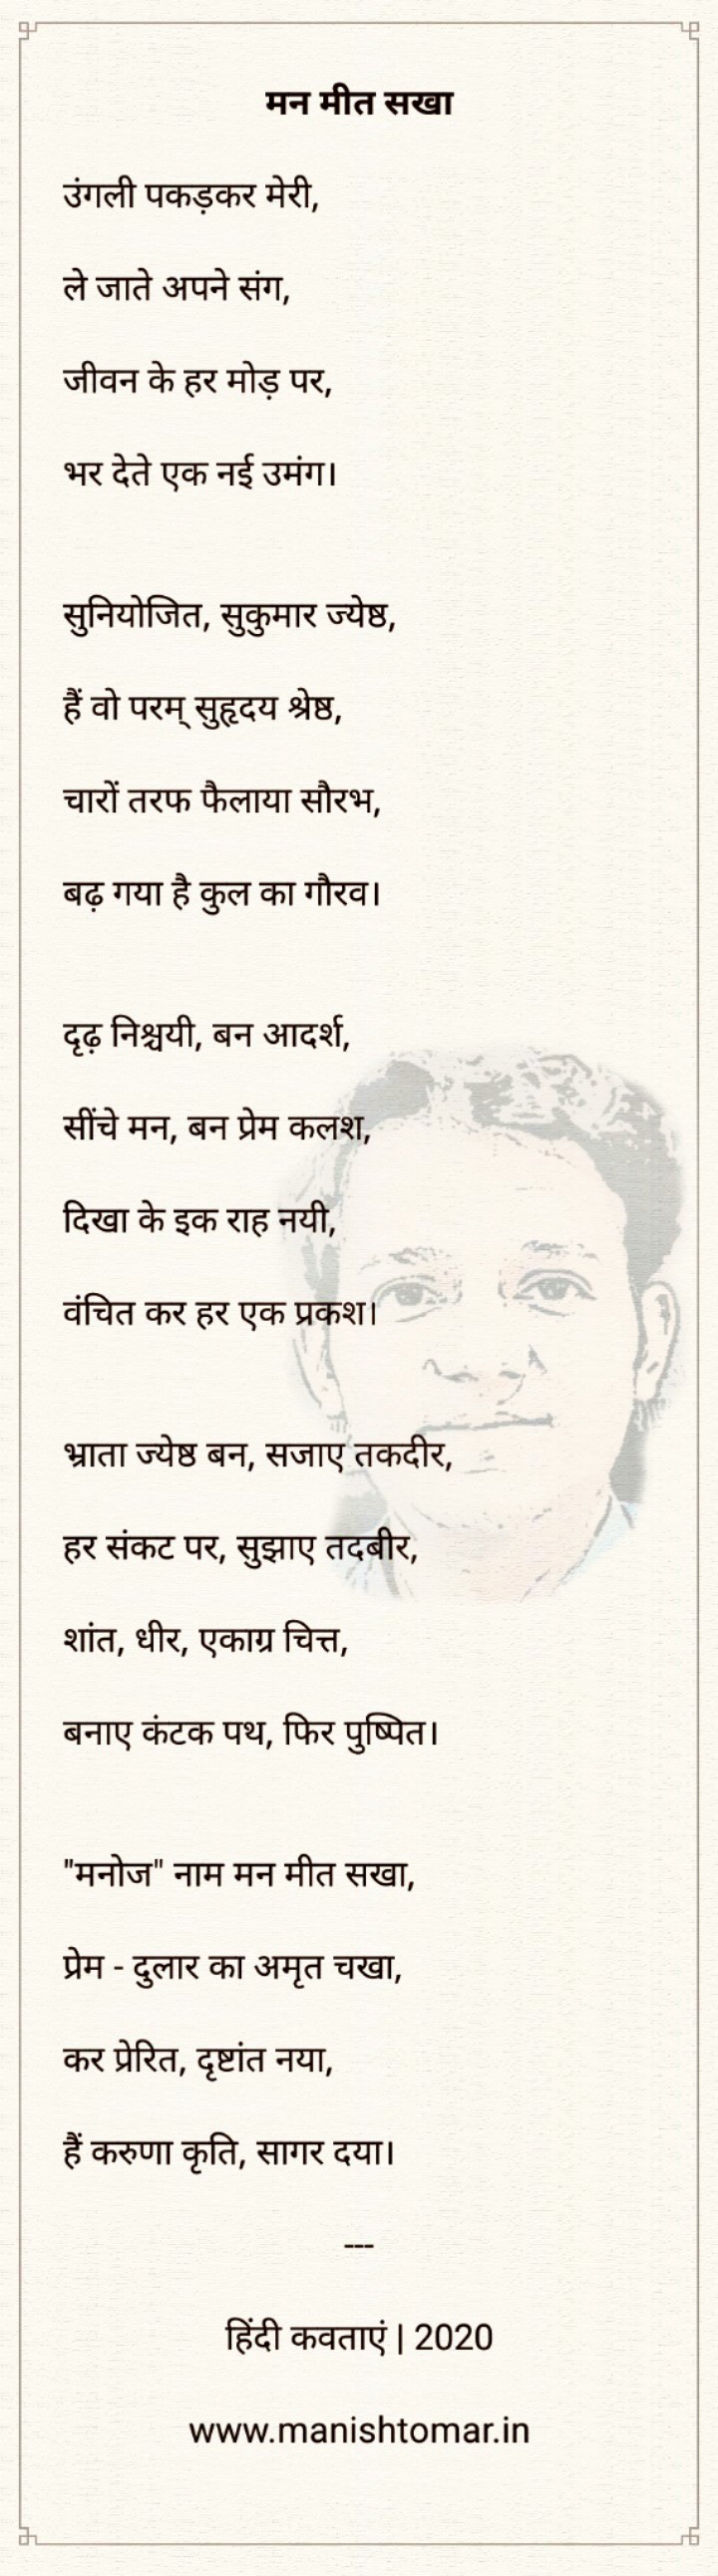 मन मीत सखा
उंगली पकड़कर मेरी,
ले जाते अपने संग,
जीवन के हर मोड़ पर,
भर देते एक नई उमंग।
सुनियोजित, सुकुमार ज्येष्ठ,
हैं वो परम् सुहृदय श्रेष्ठ,
चारों तरफ फैलाया सौरभ,
बढ़ गया है कुल का गौरव।
दृढ़ निश्चयी, बन आदर्श,
सींचे मन, बन प्रेम कलश,
दिखा के इक राह नयी,
वंचित कर हर एक प्रकश।
भ्राता ज्येष्ठ बन, सजाए तकदीर,
हर संकट पर, सुझाए तदबीर,
शांत, धीर, एकाग्र चित्त,
बनाए कंटक पथ, फिर पुष्पित।
"मनोज" नाम मन मीत सखा,
प्रेम - दुलार का अमृत चखा,
कर प्रेरित, दृष्टांत नया,
हैं करुणा कृति, सागर दया।
---
हिंदी कवताएं | 2020
www.manishtomar.in